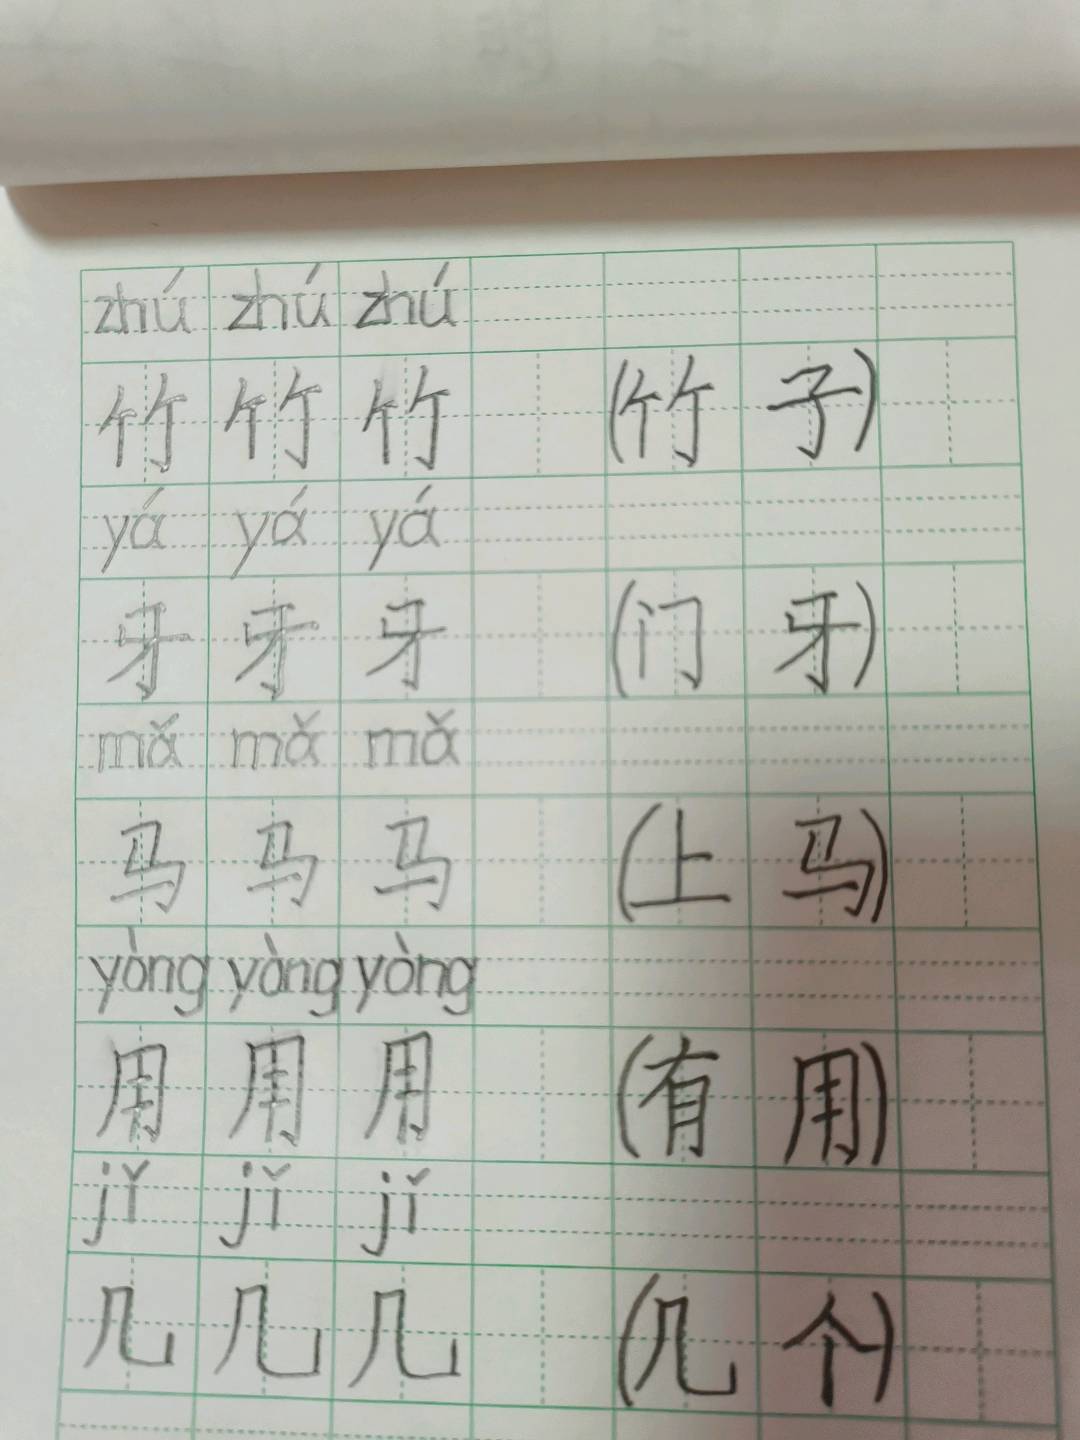 zhú zhú zhú
竹 竹 竹 (竹 子)
yá yá yá
牙 牙 牙 (门 牙)
mǎ mǎ mǎ
马 马 马 (上 马)
yòng yòng yòng
用 用 用 (有 用)
jǐ jǐ jǐ
几 几 几 (几 个)